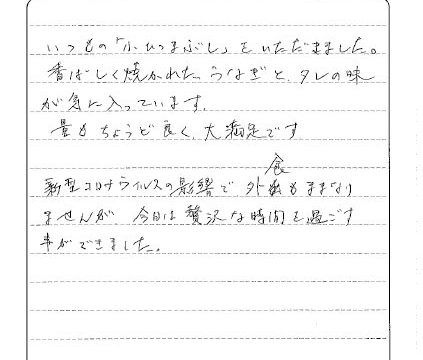 いつもの「小ひつまぶし」をいただきました。
香ばしく焼かれたうなぎと、タレの味
が気に入っています。
量もちょうど良く、大満足です
新型コロナウイルスの影響で 外食もままなり
ませんが 今日は贅沢な時間を過ごす
事ができました。